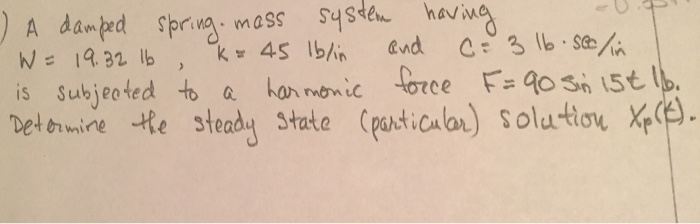 ) A damped spring-mass system having
W = 19.32 lb , K = 45 lb/in and C = 3 lb·sec/in
is subjected to a harmonic force F = 90 sin 15t lb.
Determine the steady state (particular) solution Xp(t).